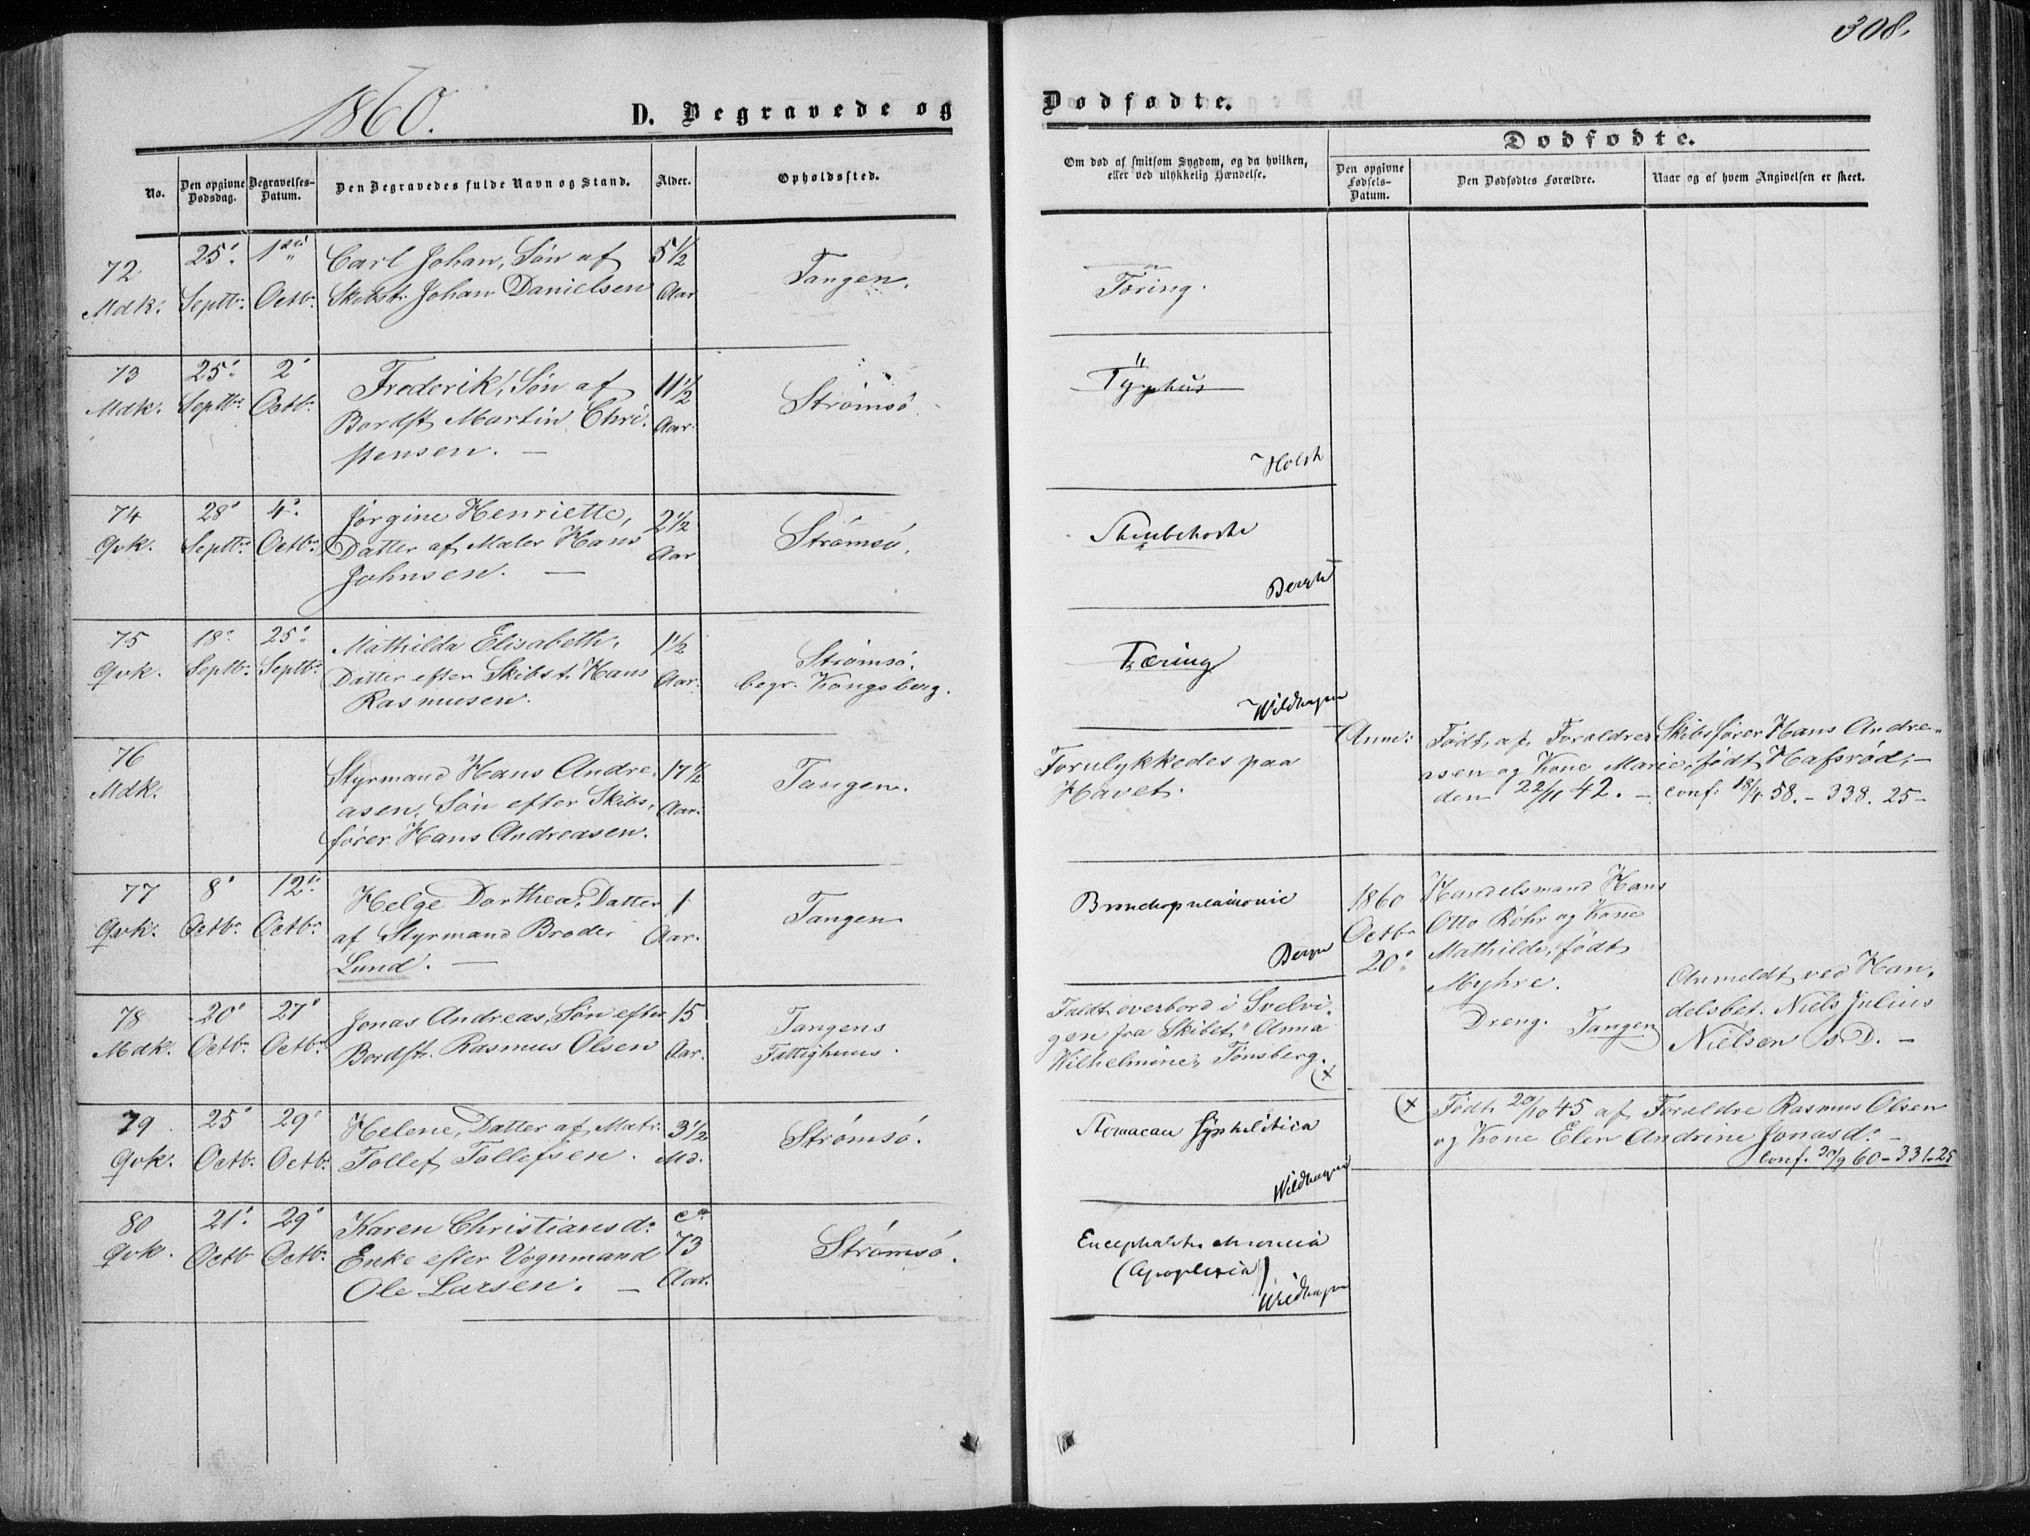 308.
1860.
D. Begravede og
Dødfødte.
No.
Den opgivne Dødsdag.
Begravelses-Datum.
Den Begravedes fulde Navn og Stand.
Alder.
Opholdssted.
Om død af smitsom Sygdom, og da hvilken,
eller ved ulykkelig Hændelse.
Dødfødte.
Den opgivne Fødsels-Datum.
Den Dødfødtes Forældre.
Naar og af hvem Angivelsen er skeet.
72 Mdk.
25' Septbr.
1ste Octbr.
Carl Johan, Søn af
Skibst. Johan Danielsen
5 1/2 Aar
Tangen.
Tæring.
73 Mdk.
25' Septbr.
2' Octbr.
Frederik, Søn af
Bordst. Martin Chri-
stensen. —
11 1/2 Aar
Strømsø.
Typhus
Holst
74 Qvk.
28' Septbr.
4' Octbr.
Jørgine Henriette,
Datter af Maler Hans
Johnsen. —
2 1/2 Aar
Strømsø.
Strubehoste
75 Qvk.
18' Septbr.
25' Septbr.
Mathilda Elisabeth,
Datter efter Skibst. Hans
Rasmusen.
1 1/2 Aar.
Strømsø.
begr. Kongsberg.
Tæring
Wildhagen
76 Mdk.
Styrmand Hans Andre-
asen, Søn efter Skibs-
fører Hans Andreasen.
17 1/2 Aar.
Tangen.
Forulykkedes paa
Havet.
Anm: Født af Forældre Skibsfører Hans Andre-
asen og Kone Marie, født Hafsrød, —
den 22/11 42. — conf. 18/4 58. — 338. 25 —
77 Qvk.
8' Octbr.
12te Octbr.
Helge Dorthea, Datter
af Styrmand Broder
Lund. —
1 Aar.
Tangen
Bronchopneumonie
1860
Octbr
20'
Handelsmand Hans
Otto Röhr og Kone
Mathilde, født
Myhre.
Dreng. Tangen
Anmeldt ved Han-
delsbet. Niels Julius
Nielsen S. D. —
78 Mdk.
20' Octbr.
27' Octbr.
Jonas Andreas, Søn efter
Bordst. Rasmus Olsen
15 Aar.
Tangens
Fattighuus.
Faldt overbord i Svelvi-
gen fra Skibet "Anna
Wilhelmine", Tønsberg.
(x)
79 Qvk.
25' Octbr.
29' Octbr.
Helene, Datter af Matr.
Tollef Tollefsen.
3 1/2 Md.
Strømsø.
Stomacace syphilitica
Wildhagen
(x) Født 20/10 45 af Forældre Rasmus Olsen
og Kone Elen Andrine Jonasd. —
conf. 30/9 60 — 331. 25
80 Qvk.
21' Octbr
29' Octbr.
Karen Christiansd.
Enke efter Vognmand
Ole Larsen. —
ca 73 Aar.
Strømsø.
Encephalitis chronica
(Apoplexia)
Wildhagen